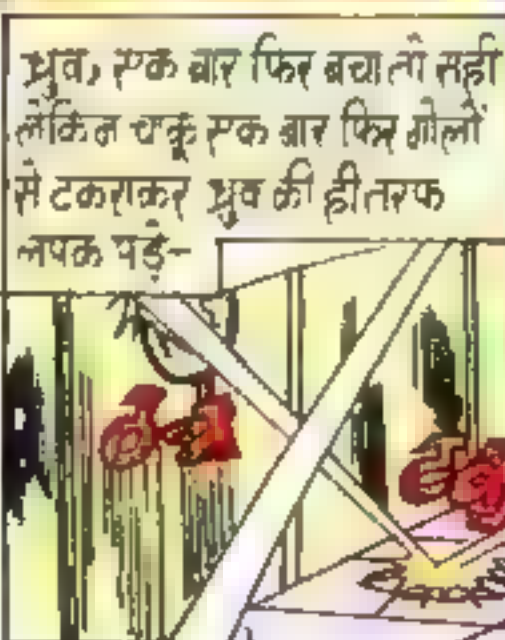 ध्रुव, एक बार फिर बचा तो सही
लेकिन चाकू एक बार फिर गोलों
से टकराकर ध्रुव की ही तरफ
लपक पड़े-